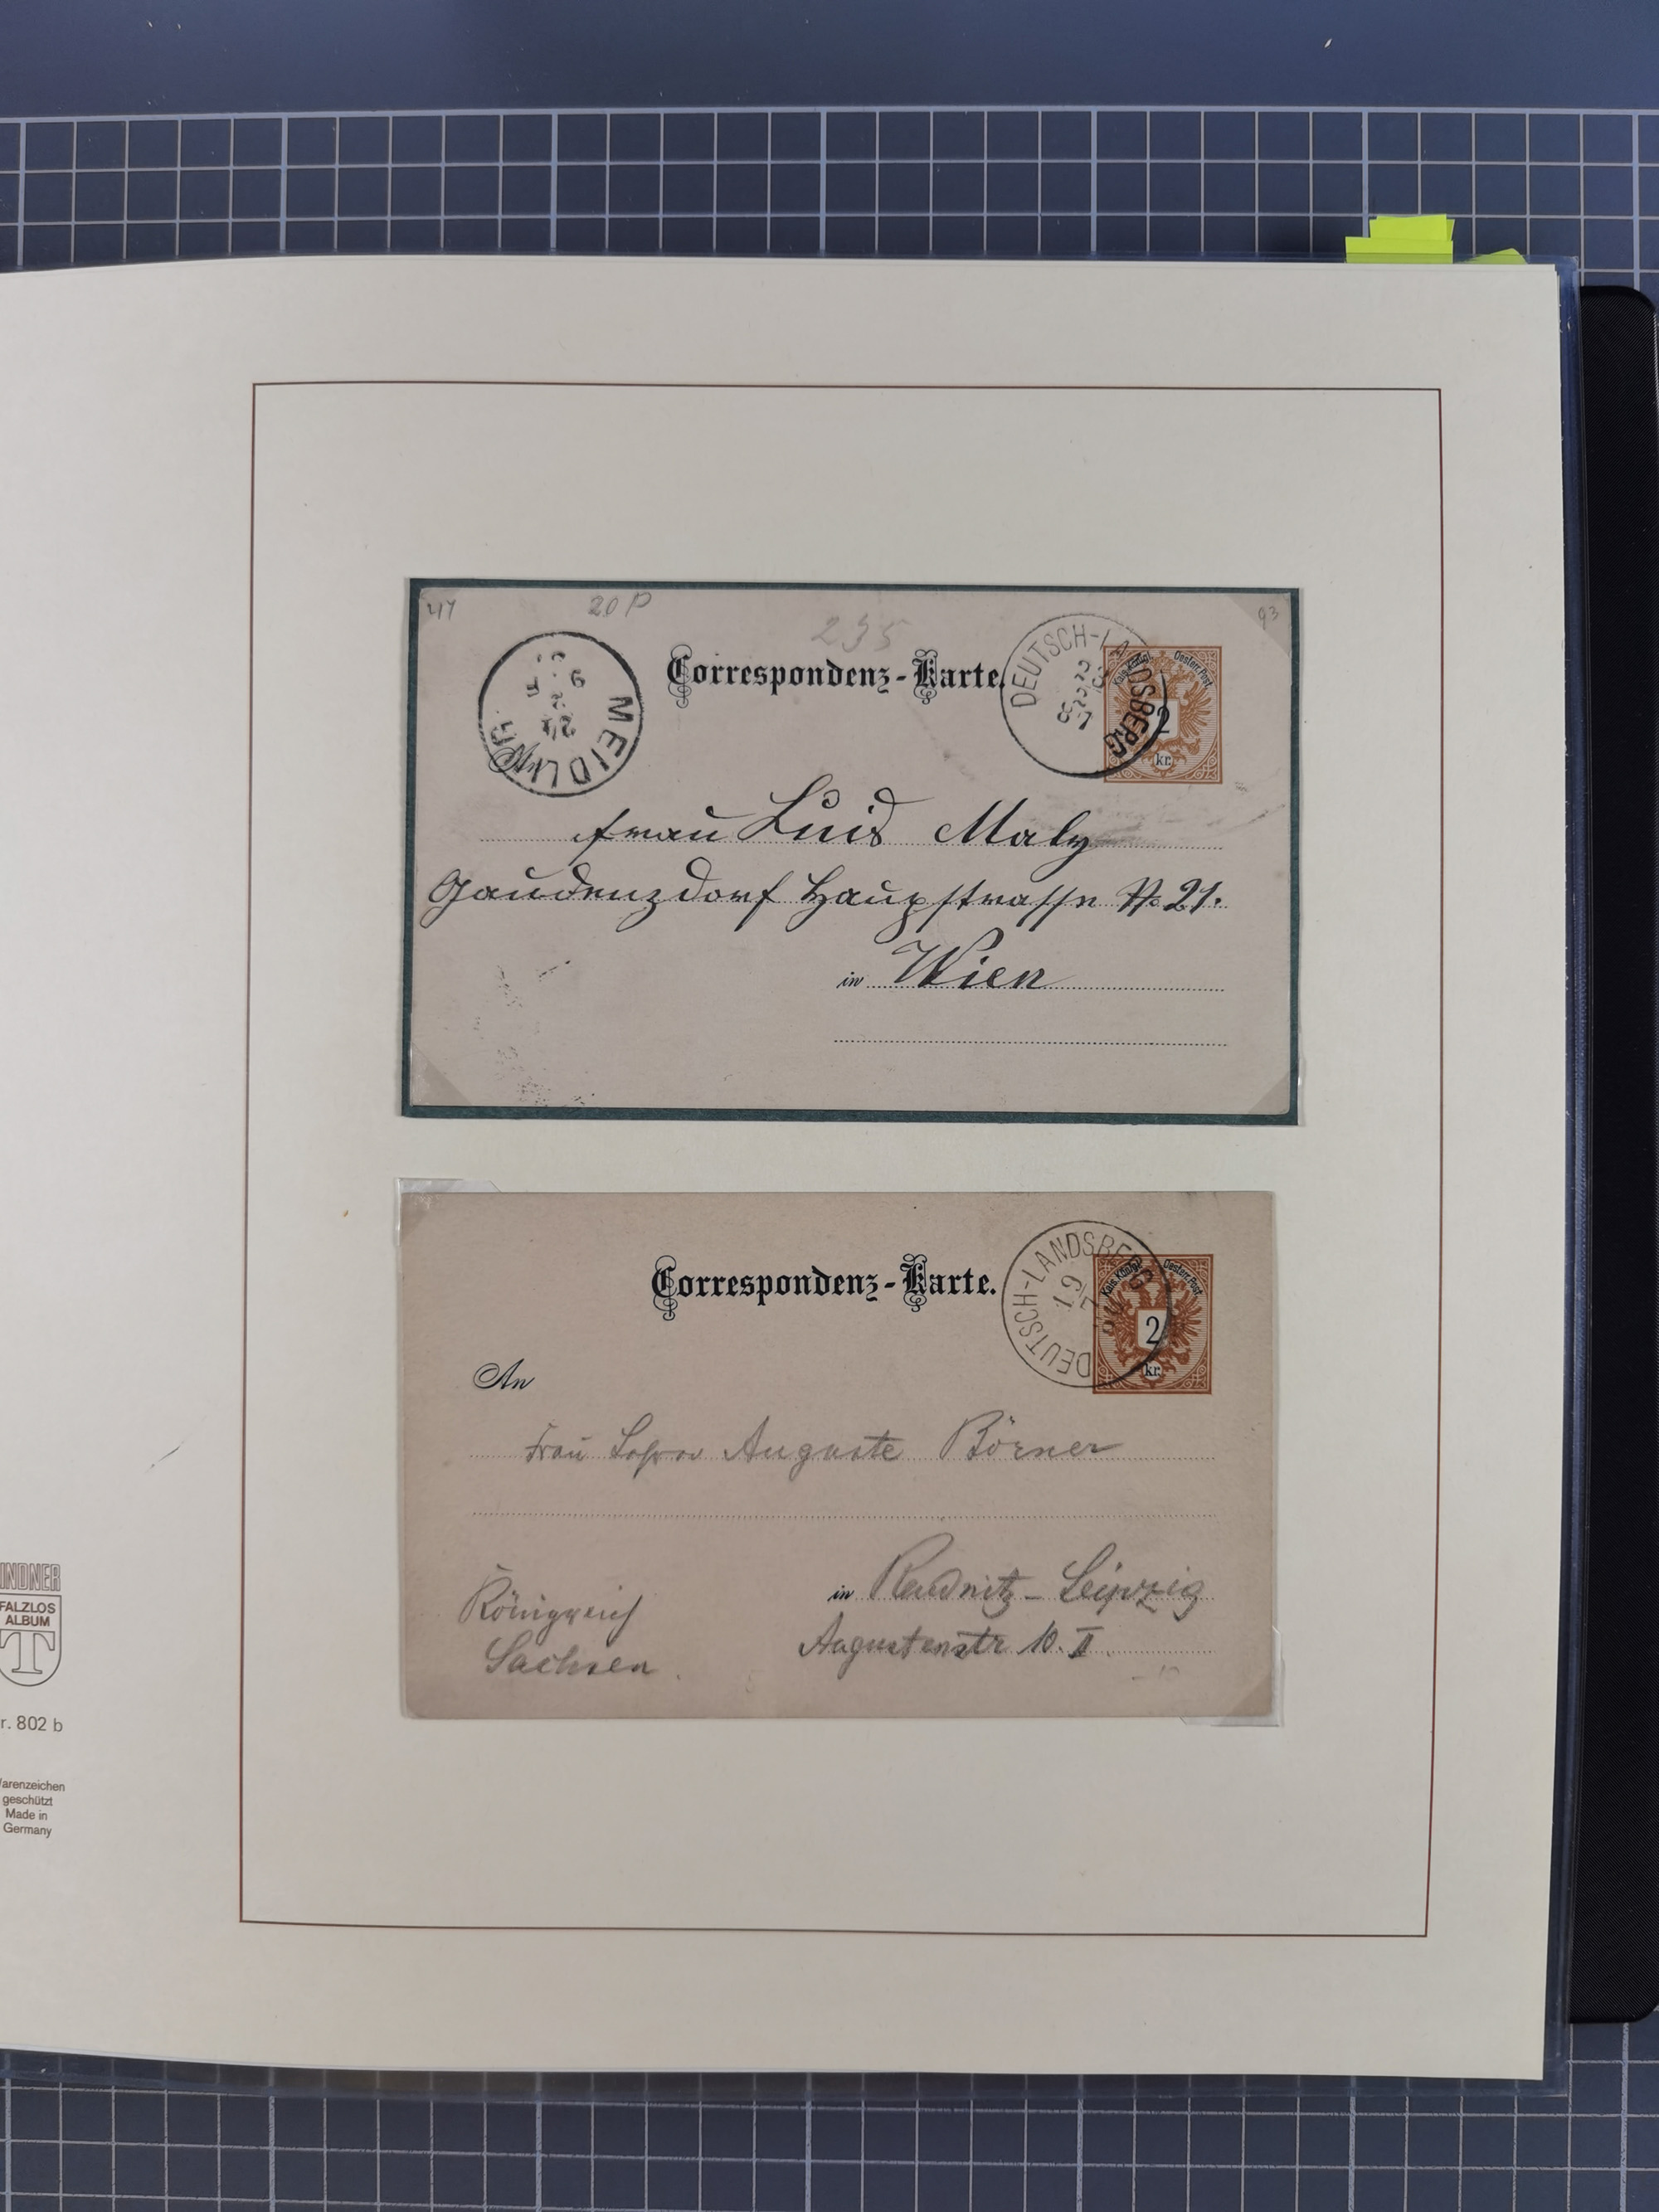 47
20 P
235
93
Correspondenz-Karte.
DEUTSCH-LANDSBERG
Kais. Königl. Oesterr. Post.
2
kr.
MEIDLING
An
Frau Luis Maly
Gaudenzdorf Haupstrasse No 21.
in Wien
Correspondenz-Karte.
DEUTSCH-LANDSBERG
19
7
Kais. Königl. Oesterr. Post.
2
kr.
An
Frau Auguste Börner
in Reudnitz-Leipzig
Königreich
Augustenstr 10. II.
Sachsen.
INDNER
FALZLOS
ALBUM
T
r. 802 b
arenzeichen
geschützt
Made in
Germany